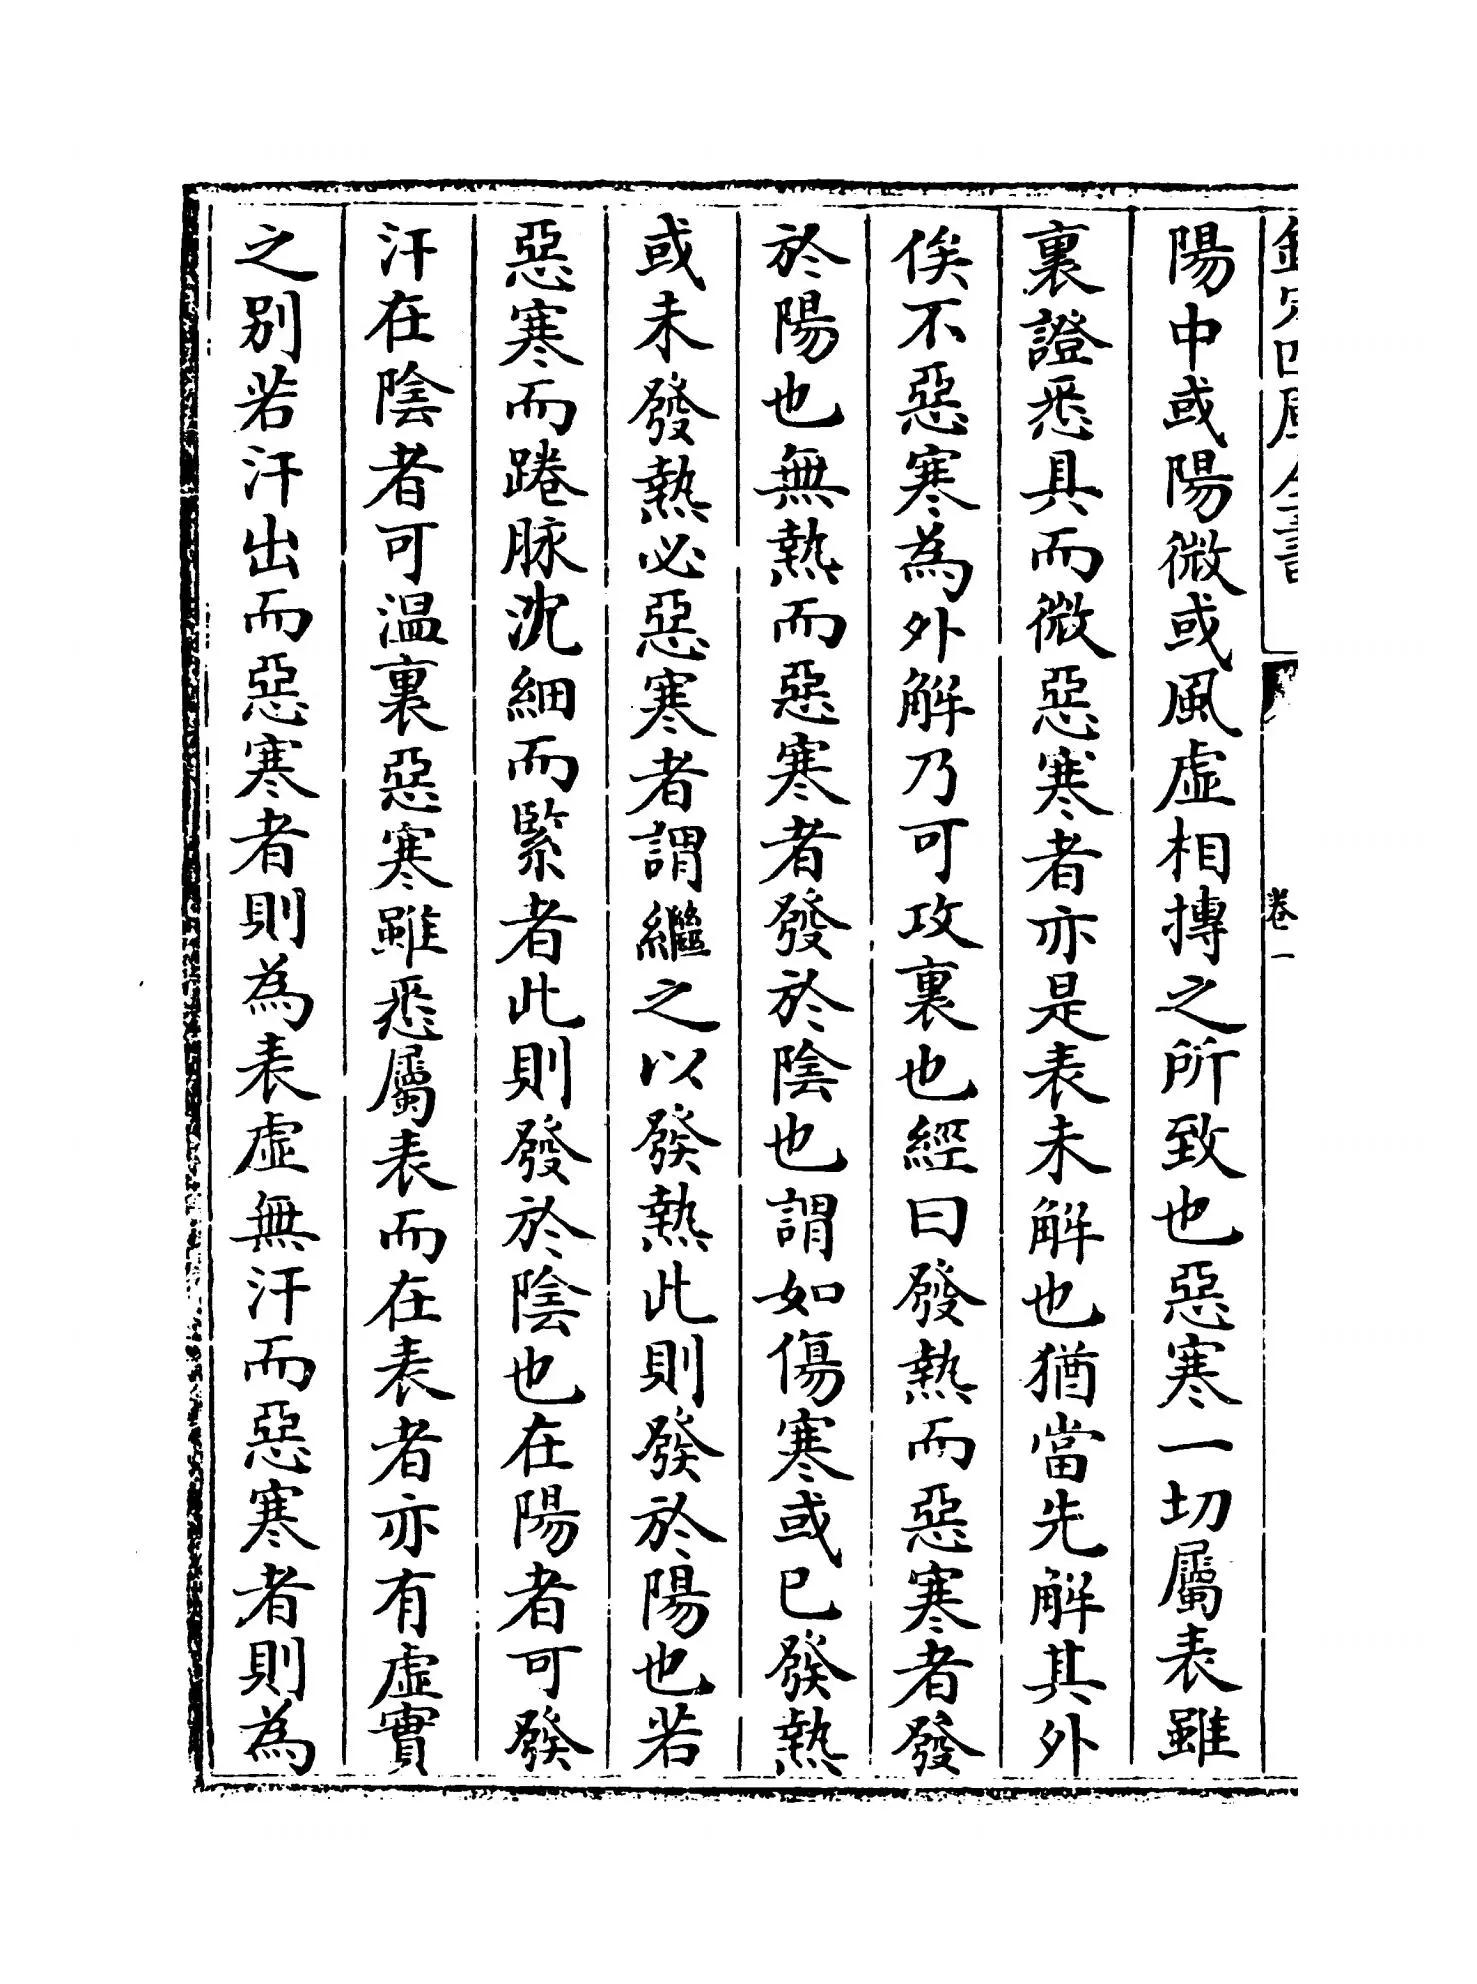 欽定四庫全書
卷一
陽中或陽微或風虛相搏之所致也惡寒一切屬表雖
裏證悉具而微惡寒者亦是表未解也猶當先解其外
俟不惡寒為外解乃可攻裏也經曰發熱而惡寒者發
於陽也無熱而惡寒者發於陰也謂如傷寒或已發熱
或未發熱必惡寒者謂繼之以發熱此則發於陽也若
惡寒而踡脉沈細而緊者此則發於陰也在陽者可發
汗在陰者可温裏惡寒雖悉屬表而在表者亦有虛實
之别若汗出而惡寒者則為表虛無汗而惡寒者則為